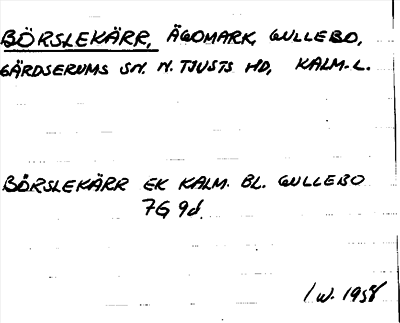 BÖRSLEKÄRR, ÄGOMARK, GULLEBO,
GÄRDSERUMS SN. N. TJUSTS HD, KALM. L.
BÖRSLEKÄRR EK KALM. BL. GULLEBO
7G 9d.
I W. 1958